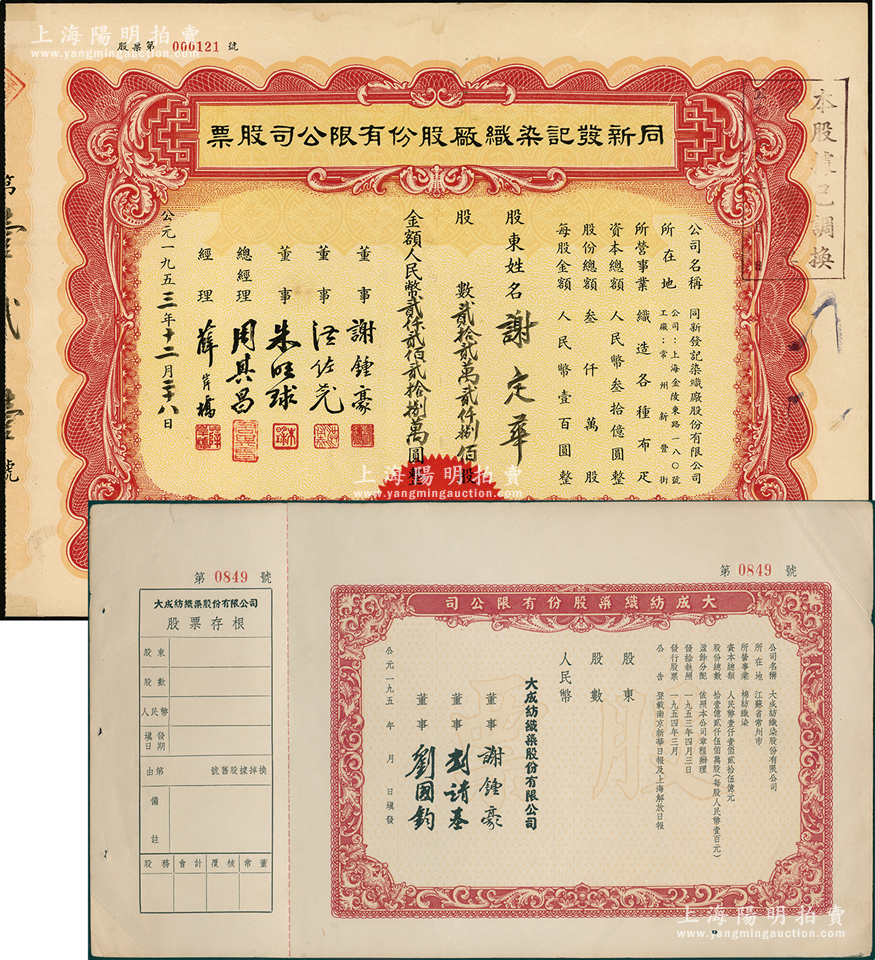 上海陽明拍賣
www.yangmingauction.com
股票第 000121 號
本股據已調換
同新發記染織廠股份有限公司股票
公司名稱 同新發記染織廠股份有限公司
所在地 公司：上海金陵東路一八〇號
工廠：常州新豐街
所營事業 織造各種布疋
資本總額 人民幣叁拾億圓整
股份總額 叁仟萬股
每股金額 人民幣壹百圓整
股東姓名 謝定華
股數 貳拾貳萬貳仟捌佰股
金額人民幣貳仟貳佰貳拾捌萬圓整
董事 謝鍾豪
董事
董事 朱旺球
總經理 周其昌
經理 薛岸橋
公元一九五三年十二月二十八日
號
上海陽明拍賣
www.yangmingauction.com
第 0849 號
大成紡織染股份有限公司
股票存根
股東
股數
人民幣
填發日期
由第 換掉據股舊號
備註
股務 會計 覆核 常董
第 0849 號
大成紡織染股份有限公司
股票
公司名稱 大成紡織染股份有限公司
所在地 江蘇省常州市
所營事業 棉紡織染
資本總額 人民幣壹仟壹佰貳拾伍億元
股份總數 拾壹億貳仟伍佰萬股(每股人民幣壹百元)
盈餘分配 依照本公司章程辦理
發給執照 一九五三年四月三日
發行股票 一九五四年三月
公告 登載南京新華日報及上海解放日報
股東
股數
人民幣
大成紡織染股份有限公司
董事 謝鍾豪
董事 劉靖基
董事 劉國鈞
公元一九五 年 月 日填發
上海陽明拍賣
www.yangmingauction.com